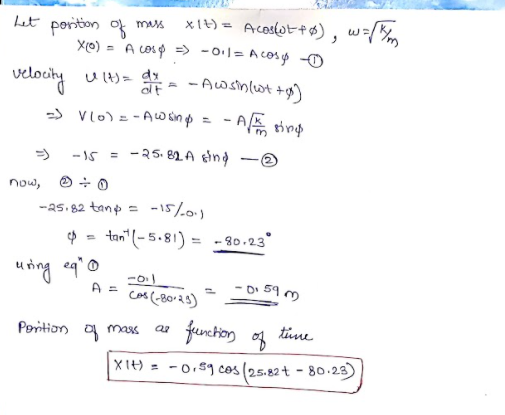 Let position of mass x(t) = A cos(ωt+φ), ω=√k/m
X(0) = A cosφ ⇒ -0.1 = A cosφ —①
velocity v(t) = dx/dt = -Aω sin(ωt+φ)
⇒ V(0) = -Aω sinφ = -A√k/m sinφ
⇒ -15 = -25.82A sinφ —②
now, ② ÷ ①
-25.82 tanφ = -15/-0.1
φ = tan⁻¹(-5.81) = -80.23°
using eqⁿ ①
A = -0.1/cos(-80.23) = -0.59 m
Position of mass as function of time
X(t) = -0.59 cos(25.82t - 80.23)